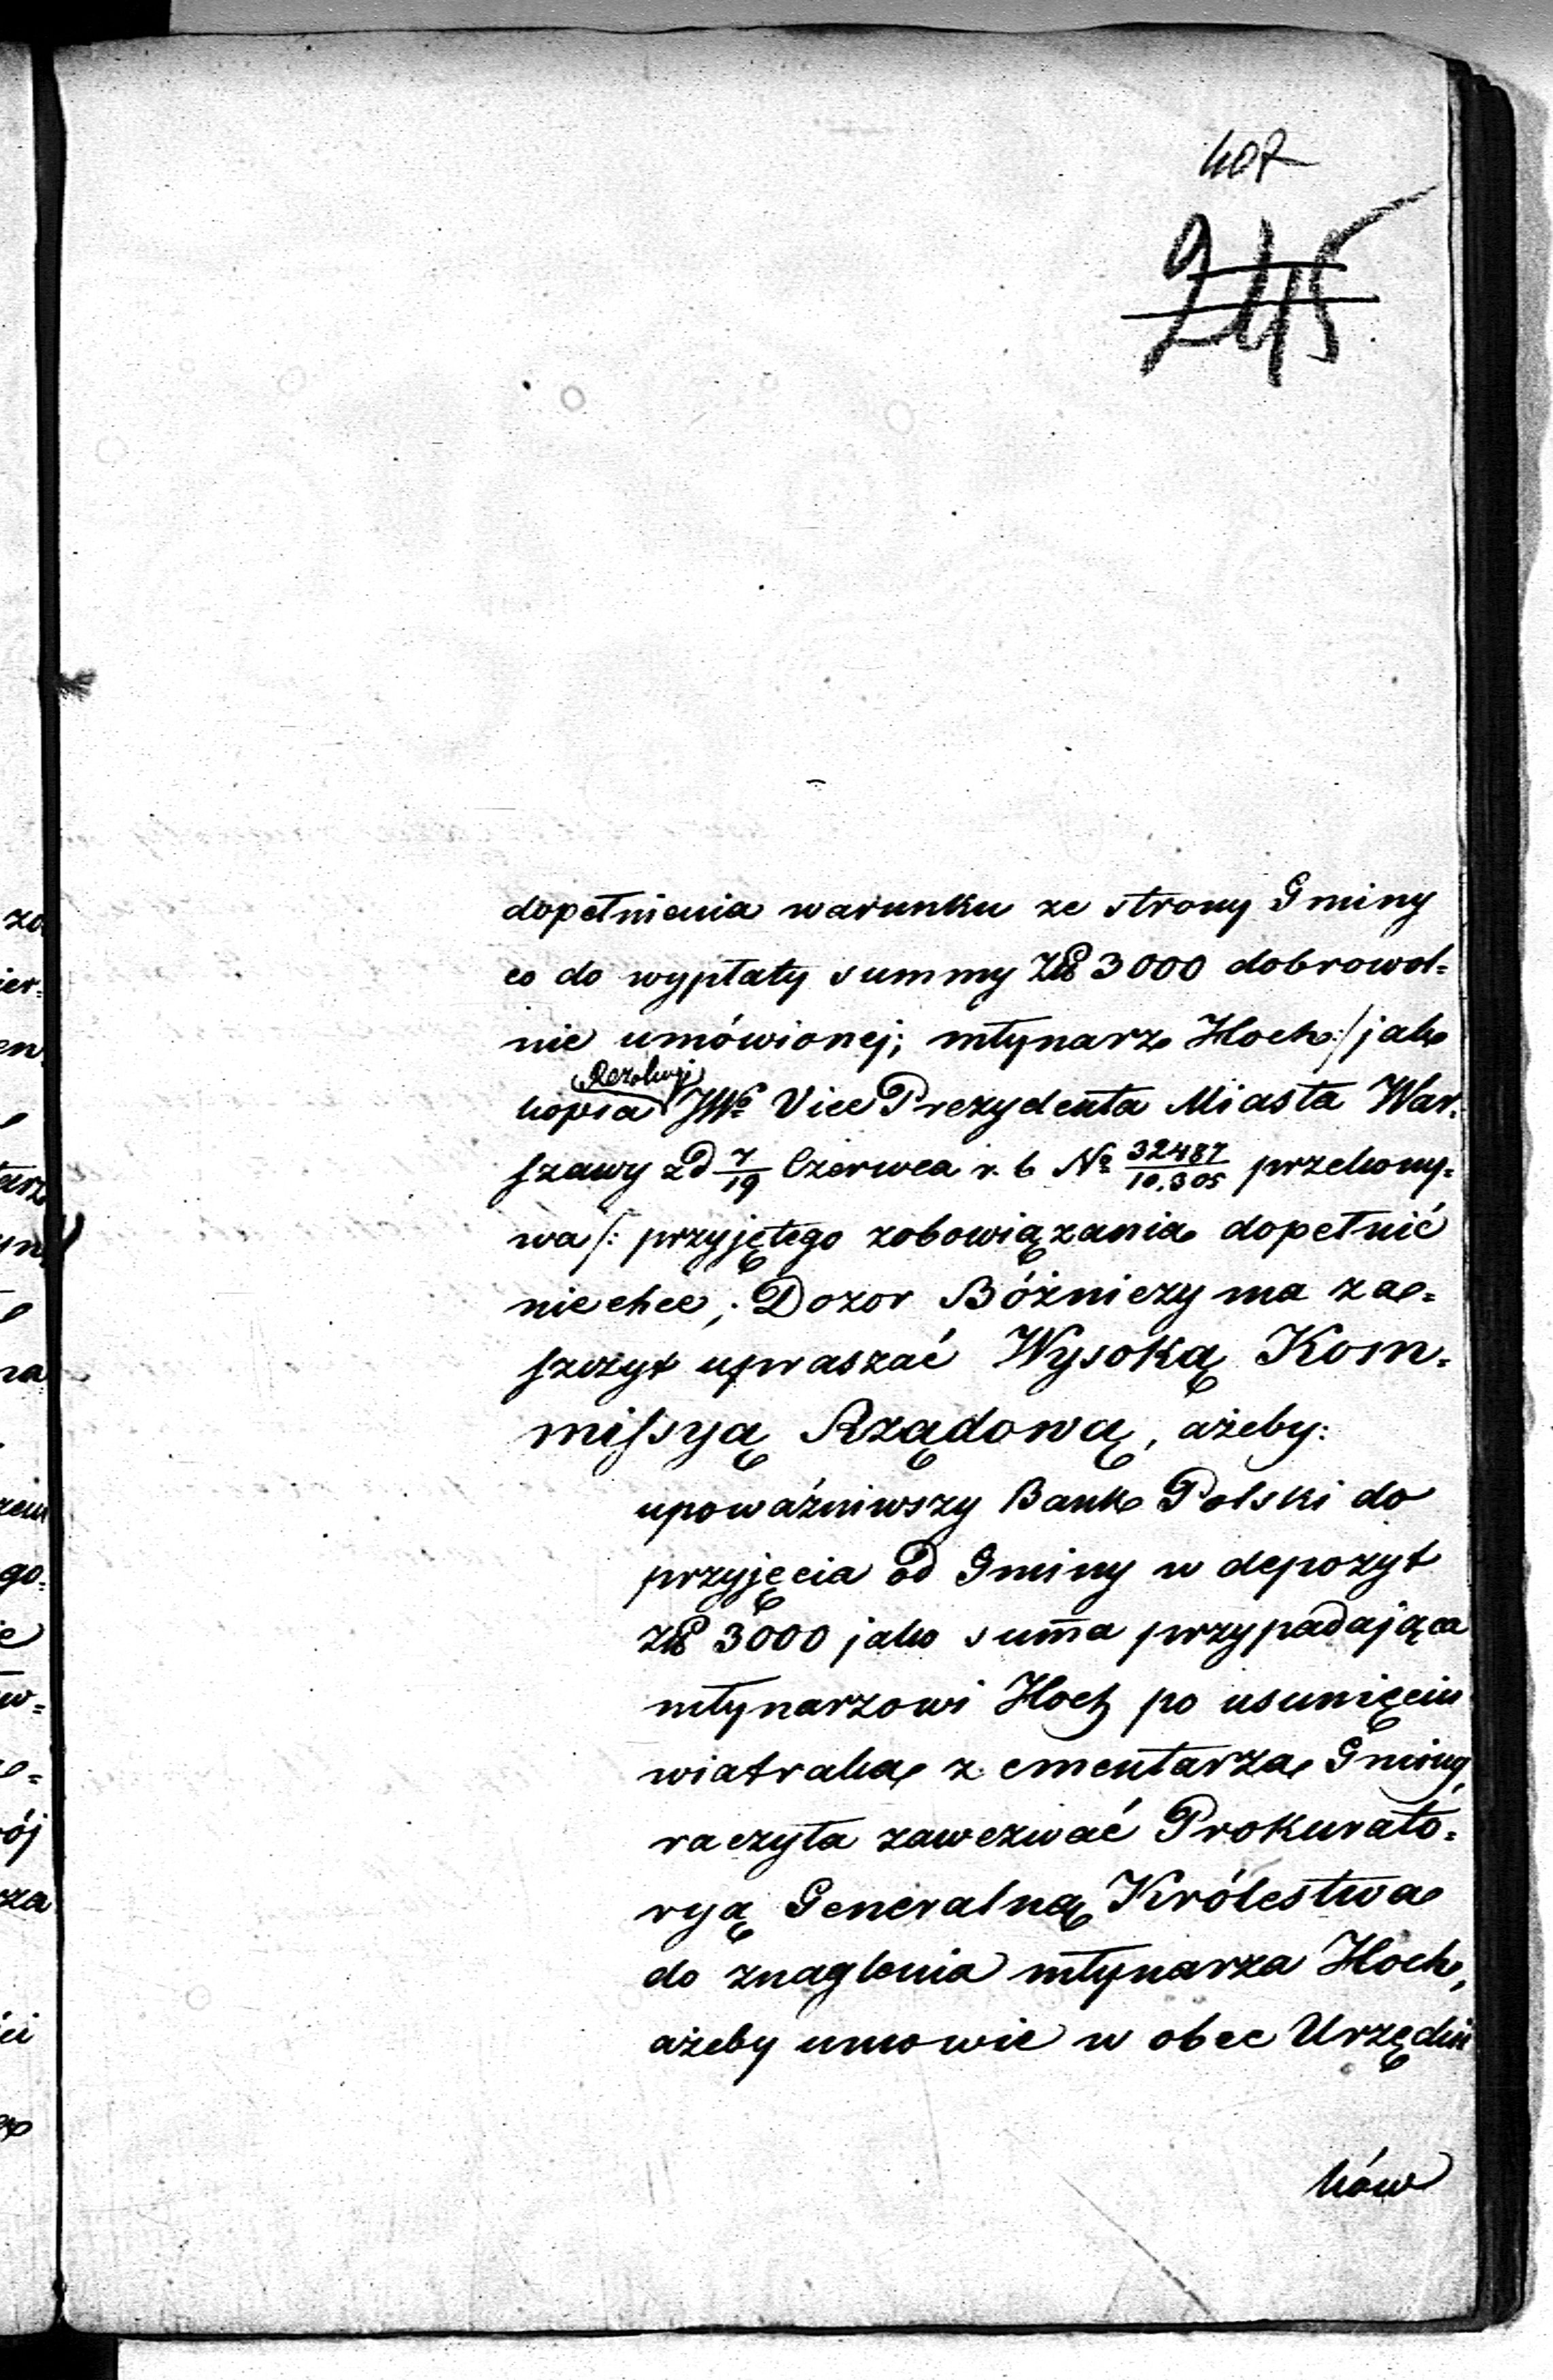 407
245
dopełnienia warunku ze strony Gminy
co do wypłaty summy Złp 3000 dobrowol=
nie umówionej; młynarz Hoch /: jak
Rezolucji
kopia JWo Vice Prezydenta Miasta War=
szawy z d 7/19 Czerwca r. b No 32487/10.305 przekony=
wa /: przyjętego zobowiązania dopełnić
niechce; Dozor Bóżniczy ma za=
szczyt upraszać Wysoką Kom=
missyą Rządową, ażeby:
upoważniwszy Bank Polski do
przyjęcia od Gminy w depozyt
złp 3000 jako sum̄a przypadająca
młynarzowi Hoch po usunięciu
wiatraka z cmentarza Gminy,
raczyła zawezwać Prokurato=
ryą Generalną Królestwa
do znaglenia młynarza Hoch,
ażeby umowie w obec Urzędni
ków